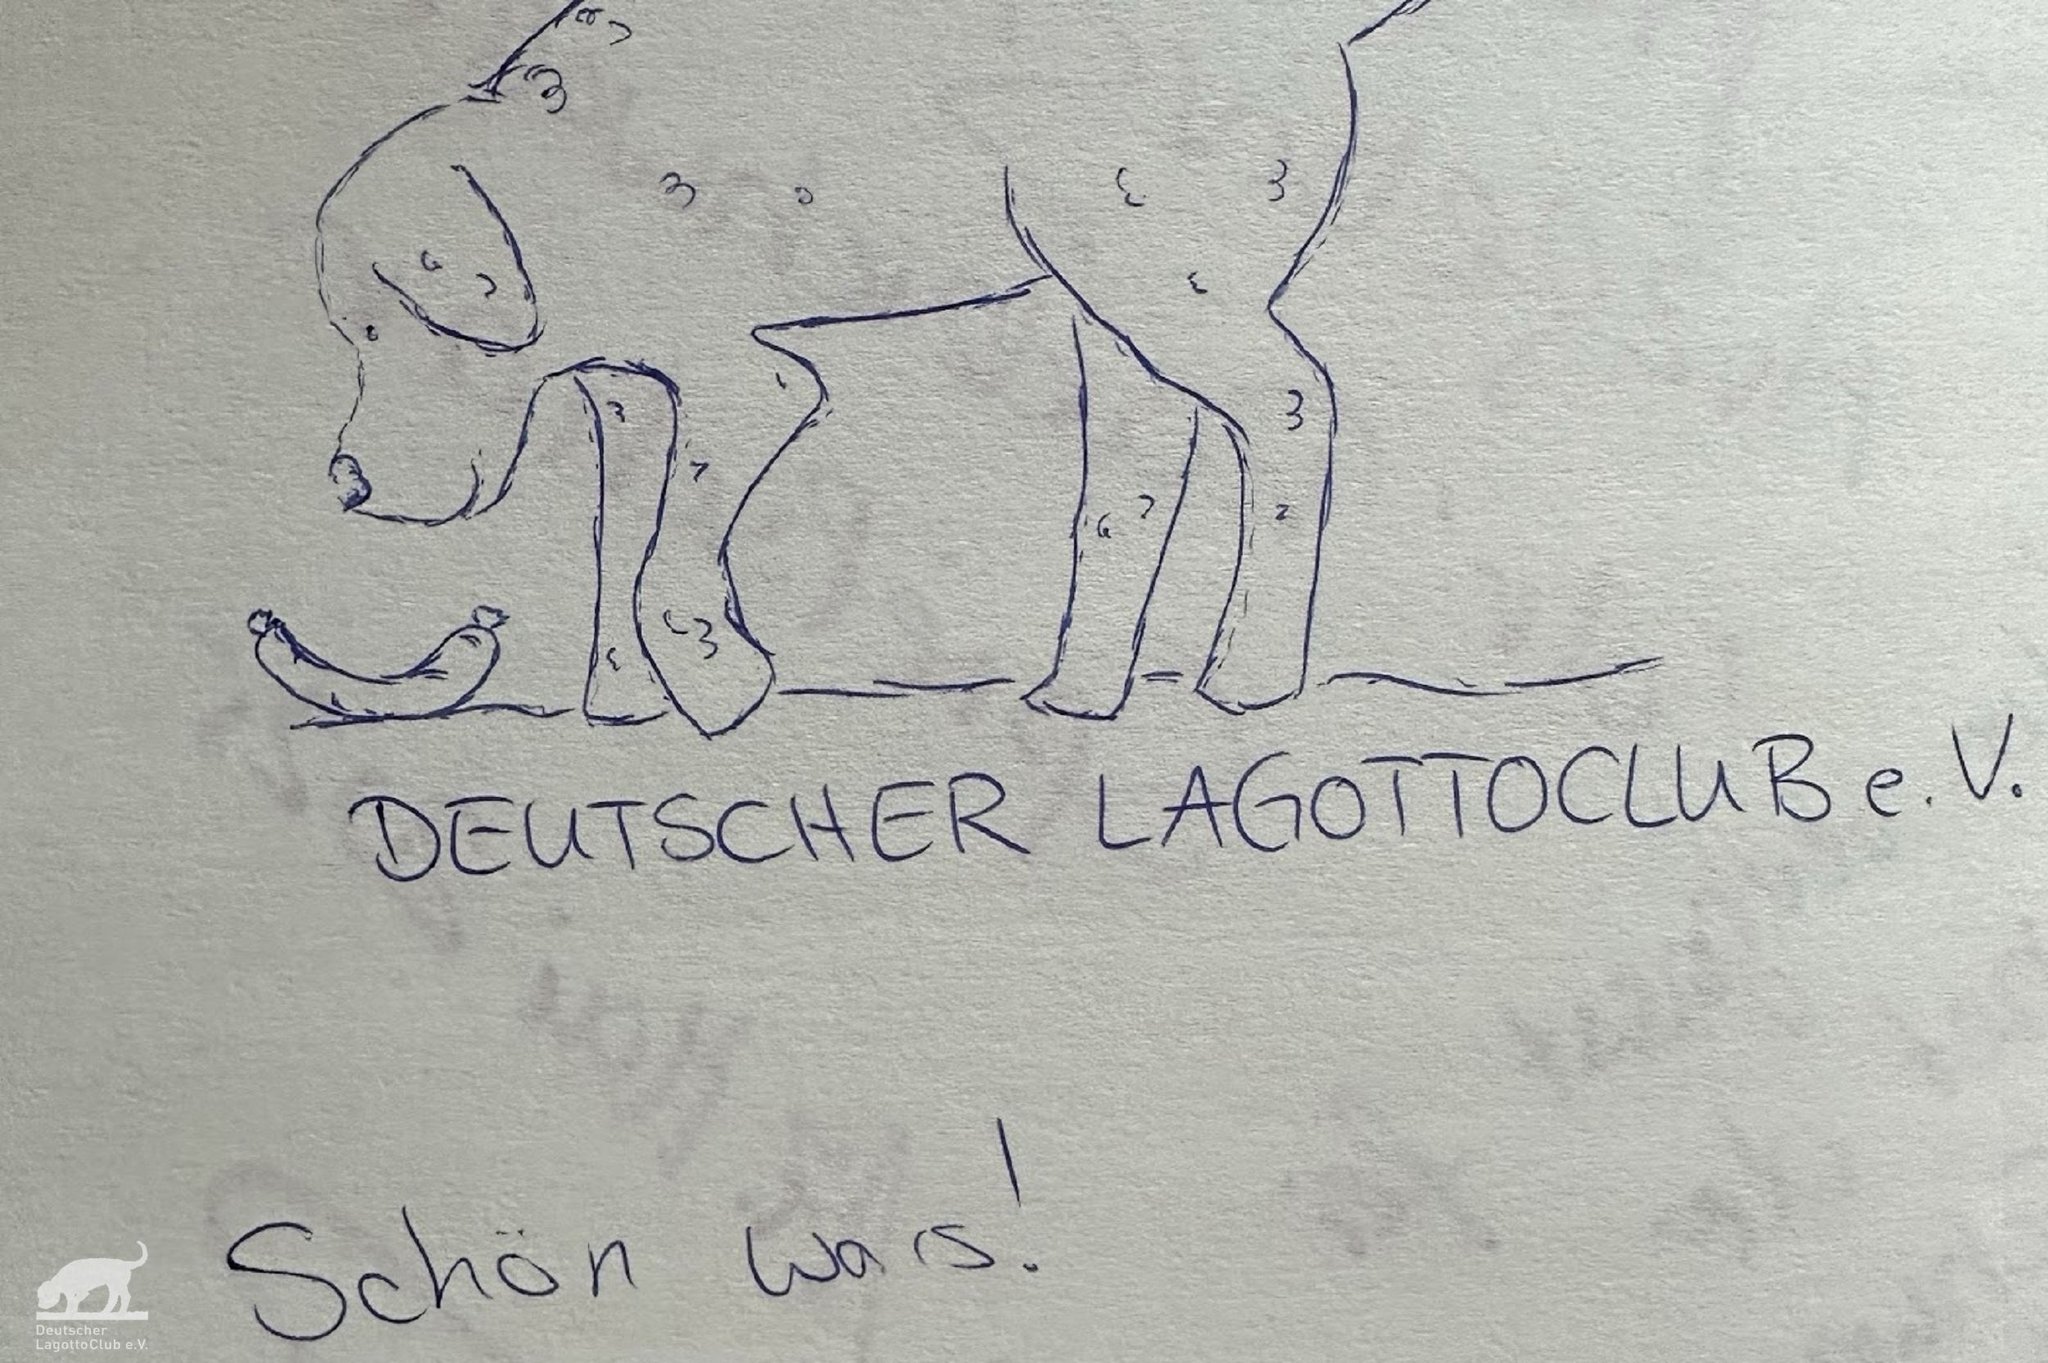 DEUTSCHER LAGOTTOCLUB e. V.
Schön wars!
Deutscher
LagottoClub e.V.